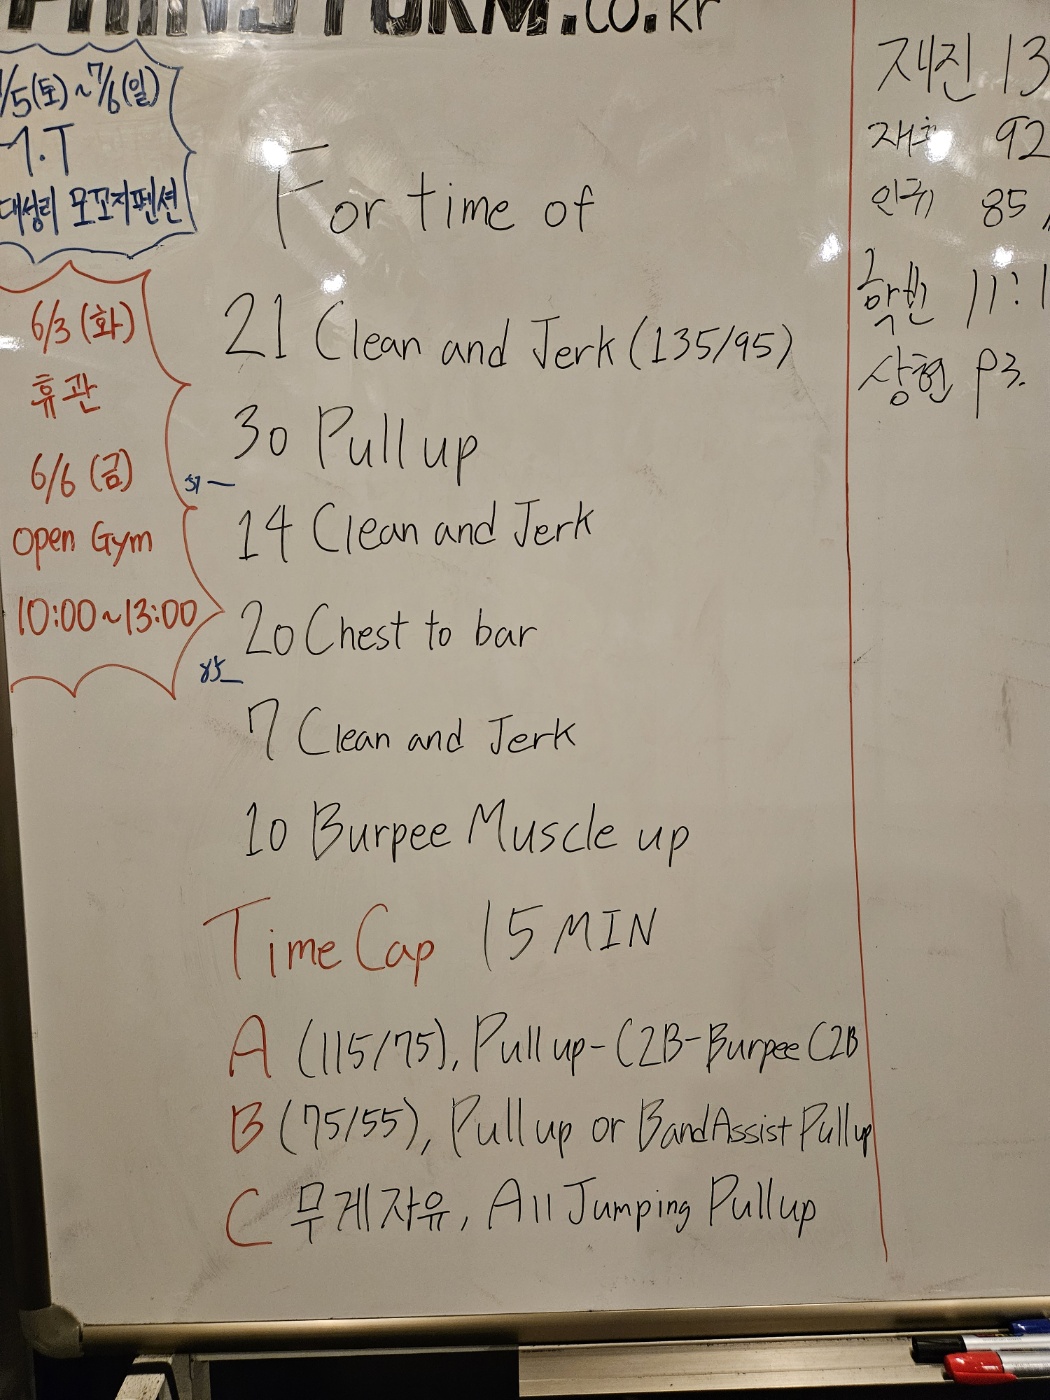 .co.kr
/5(토)~7/6(일)
대성리 모꼬지펜션
6/3 (화)
휴관
6/6 (금)
Open Gym
10:00~13:00
For time of
21 Clean and Jerk (135/95)
30 Pull up
51
14 Clean and Jerk
20 Chest to bar
85
7 Clean and Jerk
10 Burpee Muscle up
Time Cap 15 MIN
A (115/75), Pull up - C2B - Burpee C2B
B (75/55), Pull up or Band Assist Pull up
C 무게자유, All Jumping Pull up
재진 13
92
85
11:1
상현